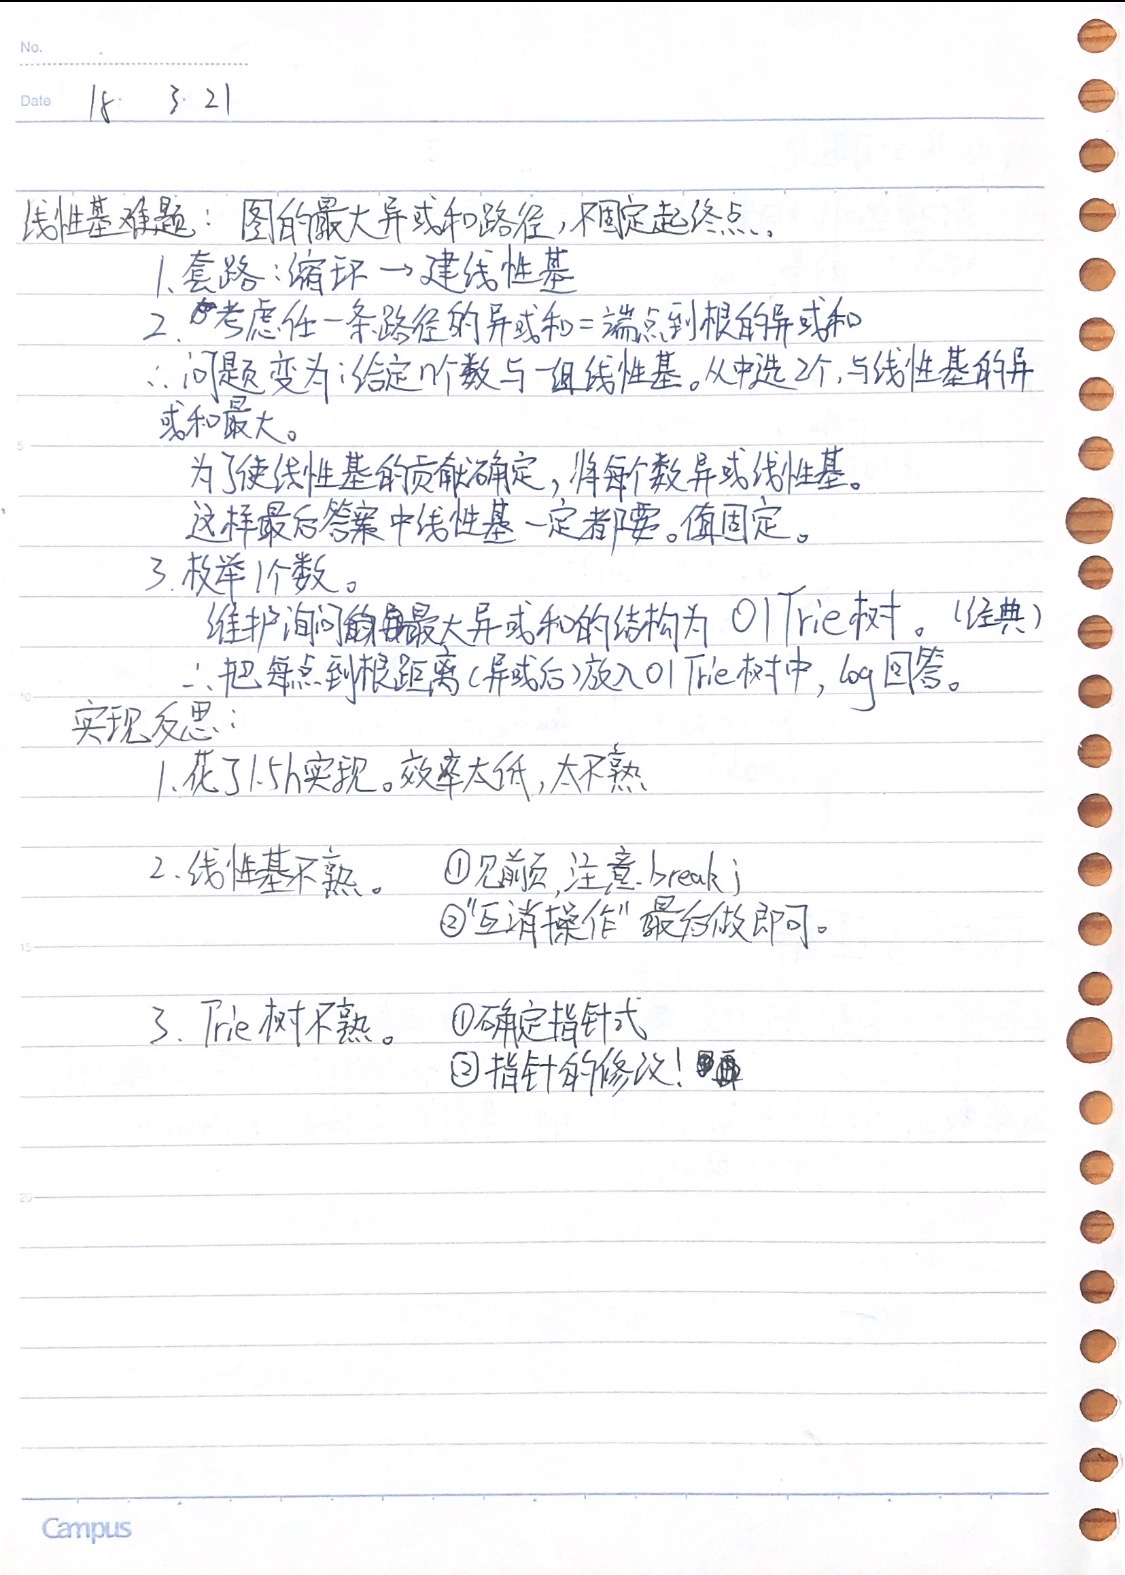 No.
Date 18. 3. 21
线性基难题：图的最大异或和路径，不固定起终点。
1. 套路：缩环→建线性基
2. 考虑任一条路径的异或和=端点到根的异或和
∴问题变为：给定n个数与一组线性基。从中选2个，与线性基的异
或和最大。
5
为了使线性基的贡献确定，将每个数异或线性基。
这样最后答案中线性基一定都要。值固定。
3. 枚举1个数。
维护询问最大异或和的结构为 01Trie树。（经典）
10
∴把每点到根距离（异或后）放入01Trie树中，log回答。
实现反思：
1. 花了1.5h实现。效率太低，太不熟
2. 线性基不熟。 ①见前页，注意break;
②"互消操作"最后做即可。
15
3. Trie树不熟。 ①确定指针式
②指针的修改！
20
Campus